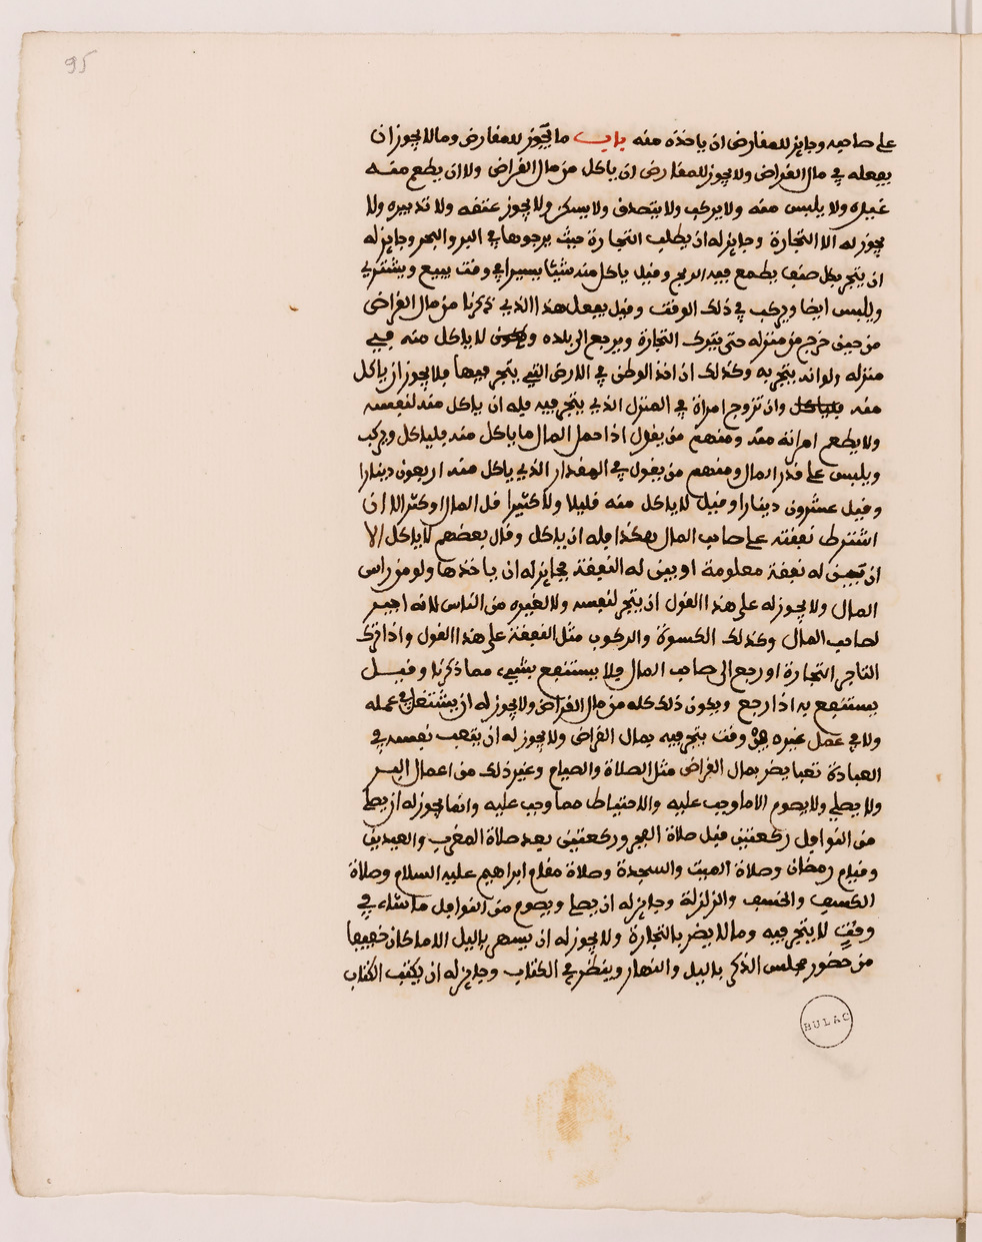 95
على صاحبه وجايز للمفارض ان ياخذه منه باب ما يجوز للمفارض وما لا يجوز ان
يفعله في مال القراض ولا يجوز للمفارض ان ياكل من مال القراض ولا ان يطعم منه
غيره ولا يلبس منه ولا يركب ولا يتصدق ولا يسكن ولا يجوز عتقه ولا تدبيره ولا
يجوز له الا التجارة وجايز له ان يطلب التجارة حيث يرجوها في البر والبحر وجايز له
ان يتجر بكل صنف يطمع فيه الربح وقيل ياكل منه شيئا يسيرا في وقت يبيع ويشتري
ويلبس ايضا ويركب في ذلك الوقت وقيل يفعل هذا الذي ذكرنا من مال القراض
من حين خرج من منزله حتى يترك التجارة ويرجع الى بلده لا ياكل منه في
منزله ولو انه يتجر به وكذلك ان اتخذ الوطن في الارض التي يتجر فيها فلا يجوز ان ياكل
منه فلياكل وان تزوج امراة في المنزل الذي يتجر فيه فله ان ياكل منه لنفسه
ولا يطعم امراته منه ومنهم من يقول اذا حمل المال ما ياكل منه فلياكل ويركب
ويلبس على قدر المال ومنهم من يقول في المقدار الذي ياكل منه اربعون دينارا
وقيل عشرون دينارا وقيل لا ياكل منه قليلا ولا كثيرا قل المال او كثر الا ان
اشترط نفقته على صاحب المال هكذا فله ان ياكل وقال بعضهم لا ياكل الا
ان تبين له نفقة معلومة او بين له النفقة فجايز له ان ياخذها ولو من راس
المال ولا يجوز له على هذا القول ان يتجر لنفسه ولا لغيره من الناس لانه اجير
لصاحب المال وكذلك الكسوة والركوب مثل النفقة على هذا القول واذا ترك
التاجر التجارة او رجع الى صاحب المال فلا يستنفع بشيء مما ذكرنا وقيل
يستنفع به اذا رجع ويكون ذلك كله من مال القراض ولا يجوز له ان يشتغل في عمله
ولا في عمل غيره في وقت يتجر فيه بمال القراض ولا يجوز له ان يتعب نفسه في
العبادة تعبا يضر بمال القراض مثل الصلاة والصيام وغير ذلك من اعمال البر
ولا يصلي ولا يصوم الا ما وجب عليه والاحتياط مما وجب عليه وانما يجوز له ان يصلي
من النوافل ركعتين قبل صلاة الفجر وركعتين بعد صلاة المغرب والعيدين
وقيام رمضان وصلاة الميت والسجدة وصلاة مقام ابراهيم عليه السلام وصلاة
الكسف والخسف والزلزلة وجايز له ان يصلي ويصوم من النوافل ما شاء في
وقت لا يتجر فيه وما لا يضر بالتجارة ولا يجوز له ان يسهر باليل الا ما كان خفيفا
من حضور مجلس الذكر باليل والنهار وينظر في الكتاب وجايز له ان يكتب الكتاب
BULAC